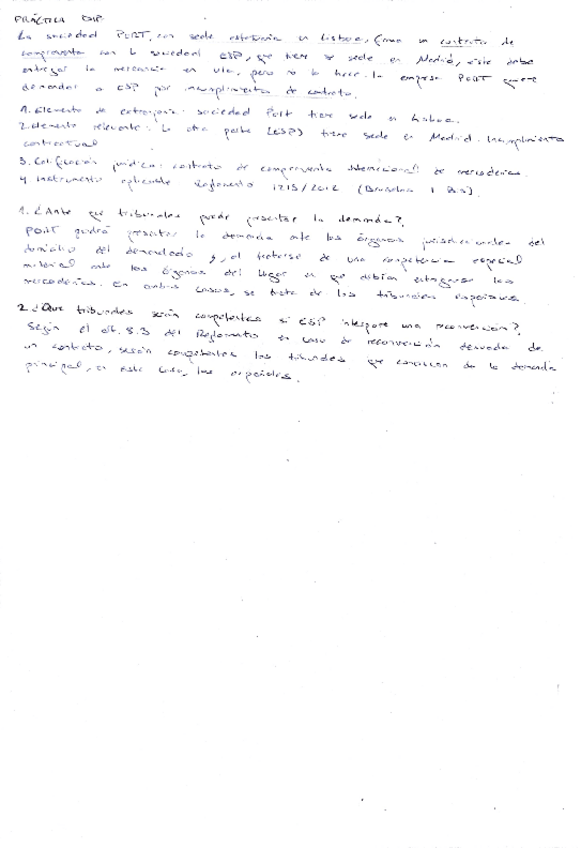 PRÁCTICA DIP
La sociedad PORT, con sede estatutaria en Lisboa, firma un contrato de
compraventa con la sociedad ESP, que tiene su sede en Madrid, este debe
entregar la mercancía en, pero no lo hace. La empresa PORT quiere
demandar a ESP por incumplimiento de contrato.
1. Elemento de extranjería: sociedad Port tiene sede en Lisboa.
2. Elemento relevante: la otra parte (ESP) tiene sede en Madrid. Incumplimiento
contractual
3. Calificación jurídica: contrato de compraventa internacional de mercaderías.
4 instrumento aplicable Reglamento 1215/2012 (Bruselas I Bis)
1. ¿Ante que tribunales puede presentar la demanda?
PORT podrá presentar la demanda ante los órganos jurisdiccionales del
domicilio del demandado y, al tratarse de una competencia especial
material ante los órganos del lugar en que debían entregarse las
mercaderías. En ambos casos, se trata de los tribunales españoles.
2. ¿Que tribunales serán competentes si ESP interpone una reconvención?
Según el art. 8.3 del Reglamento en caso de reconvención derivada de
un contrato, serán competentes los tribunales que conozcan de la demanda
principal, en este caso, los españoles.